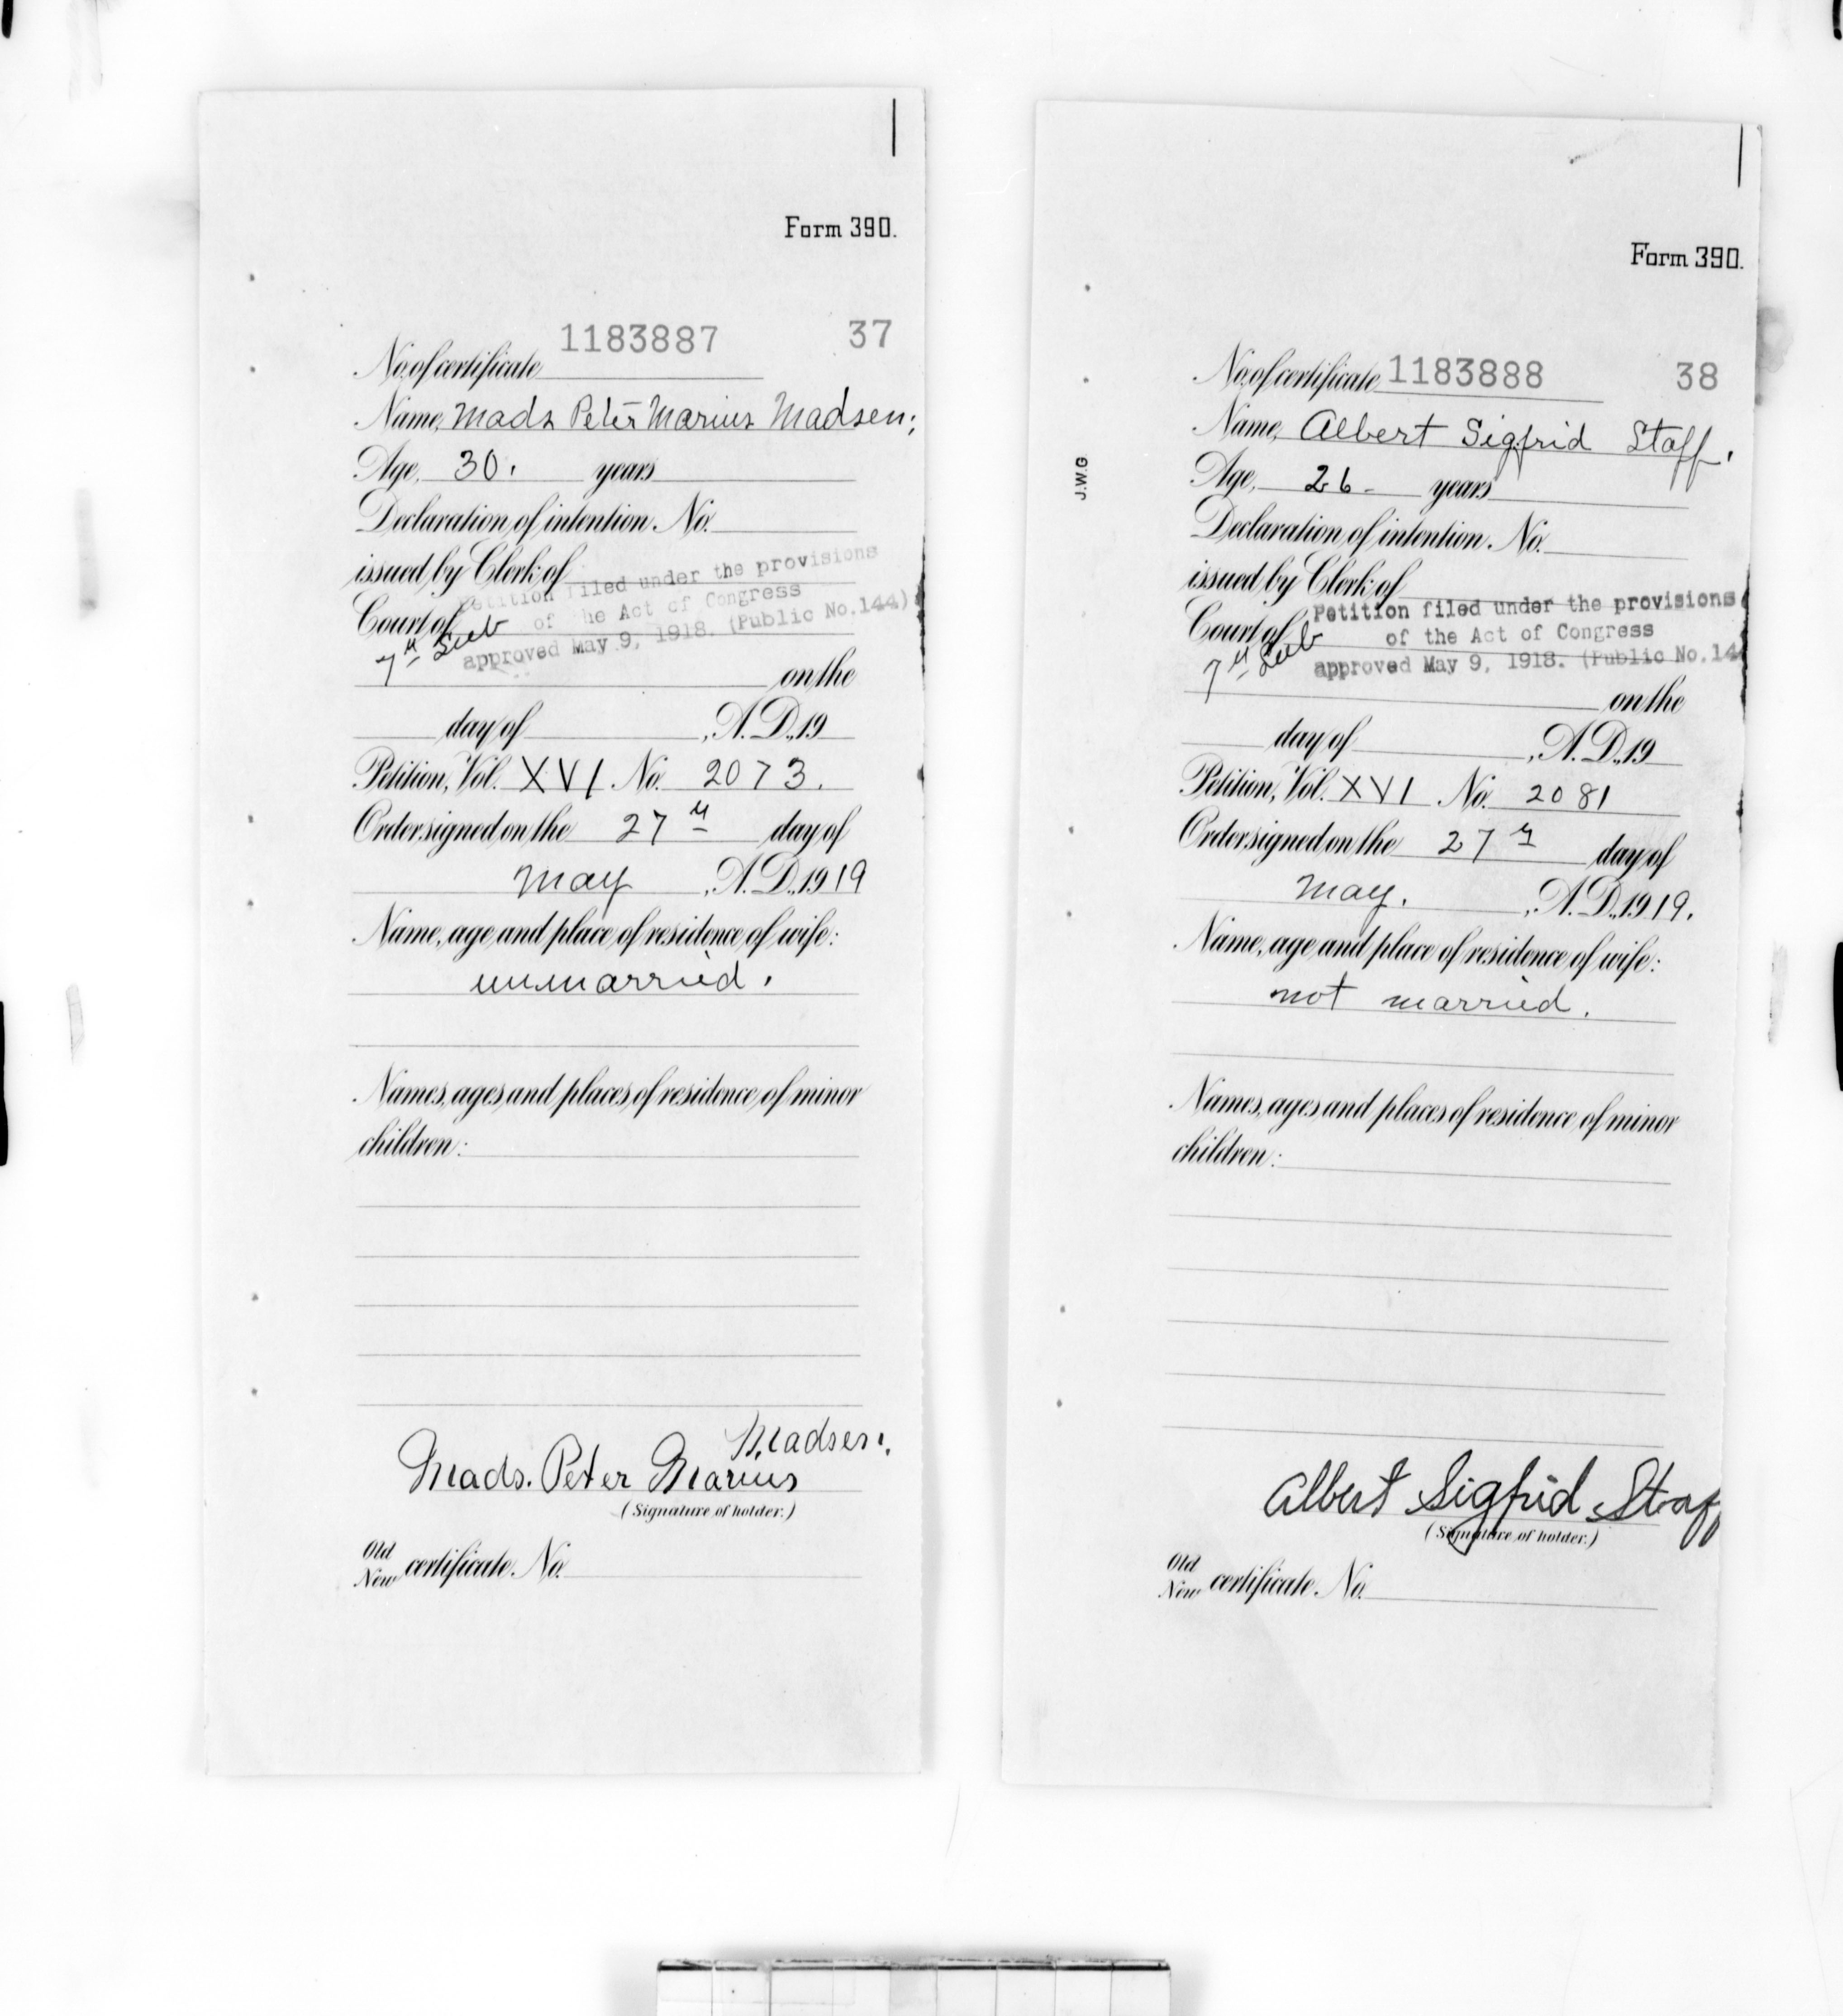 Form 390.
1183887 37
No. of certificate
Name, Mads Peter Marius Madsen,
Age, 30. years
Declaration of intention No.
issued by Clerk of
Petition filed under the provisions
Court of
of the Act of Congress
approved May 9, 1918. (Public No.144)
7th Sub
on the
day of , A.D., 19
Petition, Vol. XVI No. 2073.
Order signed on the 27th day of
May , A.D., 1919
Name, age and place of residence of wife:
unmarried.
Names, ages and places of residence of minor
children:
Madsen.
Mads. Peter Marius
(Signature of holder.)
Old
New certificate No.
Form 390.
No. of certificate 1183888 38
Name, Albert Sigfrid Staff.
J.W.G
Age, 26- years
Declaration of intention No.
issued by Clerk of
Petition filed under the provisions
Court of
of the Act of Congress
approved May 9, 1918. (Public No.144
7th Sub
on the
day of , A.D., 19
Petition, Vol. XVI No. 2081
Order signed on the 27th day of
May. , A.D., 1919.
Name, age and place of residence of wife:
not married.
Names, ages and places of residence of minor
children:
Albert Sigfrid Staff
(Signature of holder.)
Old
New certificate No.